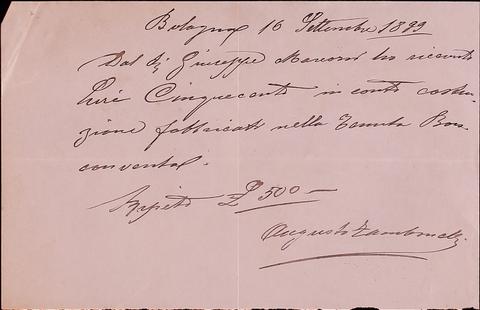 Bologna 16 Settembre 1899
Dal Sig Giuseppe Marconi ho ricevuto
Lire Cinquecento in conto costru-
zione fabbricato nella Tenuta Bon-
convento.
Ripeto £ 500 —
Augusto Zambonelli